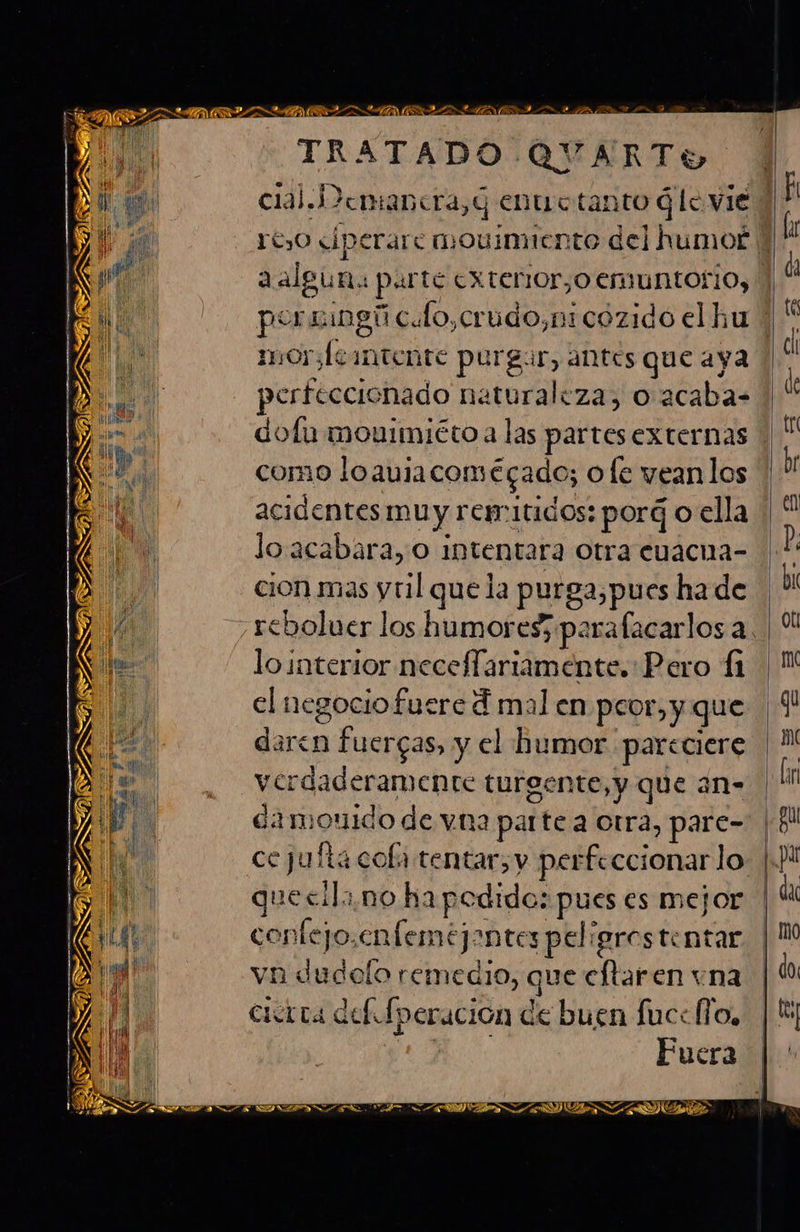 TRATADO QVARTO
cial. Demanera, q̃ entretanto q̃ ſe vie
rẽ, o eſperarẽ mouimiento del humor
a alguna parte exterior, o emuntorio,
por ningũ caſo, crudo, ni cozido el hu
mor, ſe intente purgar, antes que aya
perfeccionado naturaleza, o acaba-
do ſu mouimiẽto a las partes externas
como lo auia comẽçado; o ſe vean los
acidentes muy remitidos: porq̃ o ella
lo acabara, o intentara otra euacua-
cion mas vtil que la purga, pues ha de
reboluer los humores, para ſacarlos a
lo interior neceſſariamente. Pero ſi
el negocio fuere đ mal en peor, y que
daren fuerças, y el humor pareciere
verdaderamente turgente, y que an-
da mouido de vna parte a otra, pare-
ce juſta coſa tentar, y perfeccionar lo
que ella no ha podido: pues es mejor
conſejo, en ſemejantes peligros tentar
vn dudoſo remedio, que eſtar en vna
cierta deſeſperacion de buen ſuceſſo.
Fuera